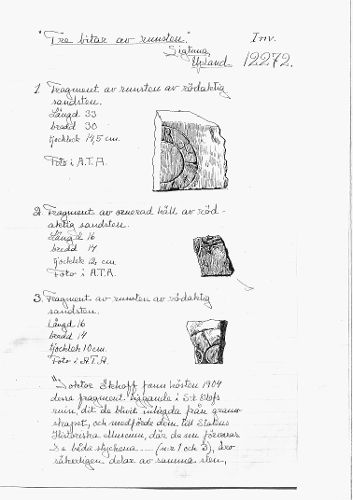 "Tre bitar av runsten." Inv.
Sigtuna,
Upland. 12272.
1 Fragment av runsten av rödaktig
sandsten.
Längd 33
bredd 30
tjocklek 14,5 cm.
Foto i A.T.A.
2. Fragment av ornerad häll av röd-
aktig sandsten.
Längd 16
bredd 14
tjocklek 12 cm
Foto i A.T.A.
3. Fragment av runsten av rödaktig
sandsten.
Längd 16
bredd 14
tjocklek 10 cm.
Foto i A.T.A.
"Doktor Ekhoff fann hösten 1904
dessa fragment liggande i S:t Olofs
ruin, dit de blivit inlagda från grann-
skapet, och medförde dem till Statens
Historiska Museum, där de nu förvaras
De båda styckena .... (nr 1 och 3), äro
säkerligen delar av samma sten,